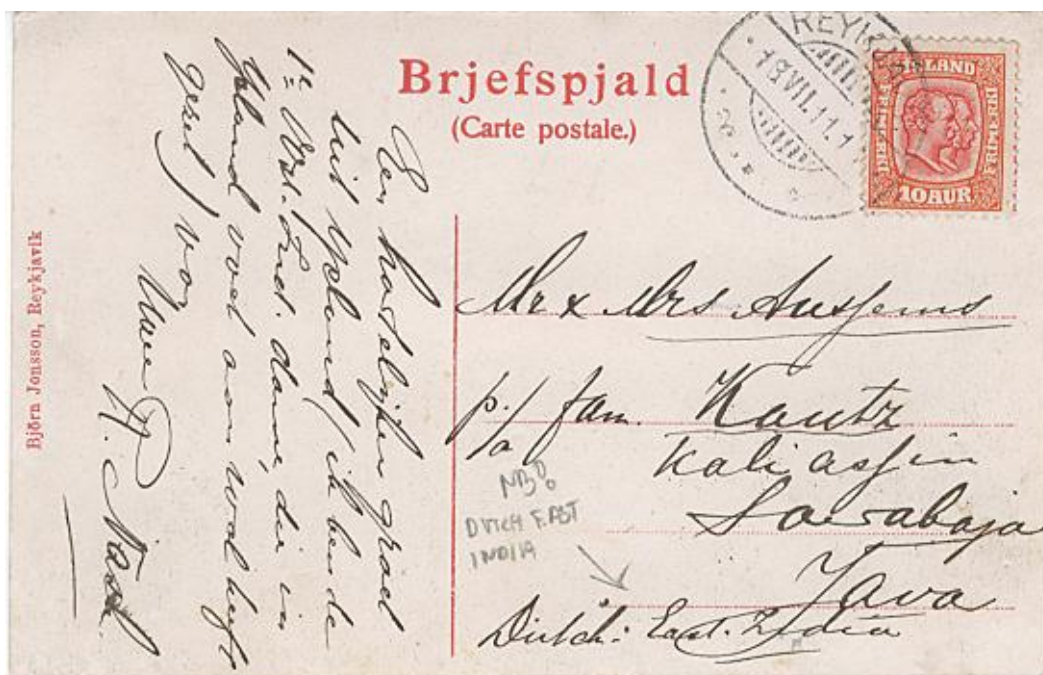 Brjefspjald
(Carte postale.)
REYKJAVIK
18.VII.11.1
ISLAND
10 AUR
Björn Jonsson, Reykjavik
Een hartelijken groet
uit Ysland, ik ben de
1e dame, die in
Ysland voet aan wal heeft
gezet, van
Mr & Mrs Ausjems
p/a fam. Kautz
Kaliassin
Soerabaja
Java
Dutch: East. India
NB
DUTCH EAST
INDIA